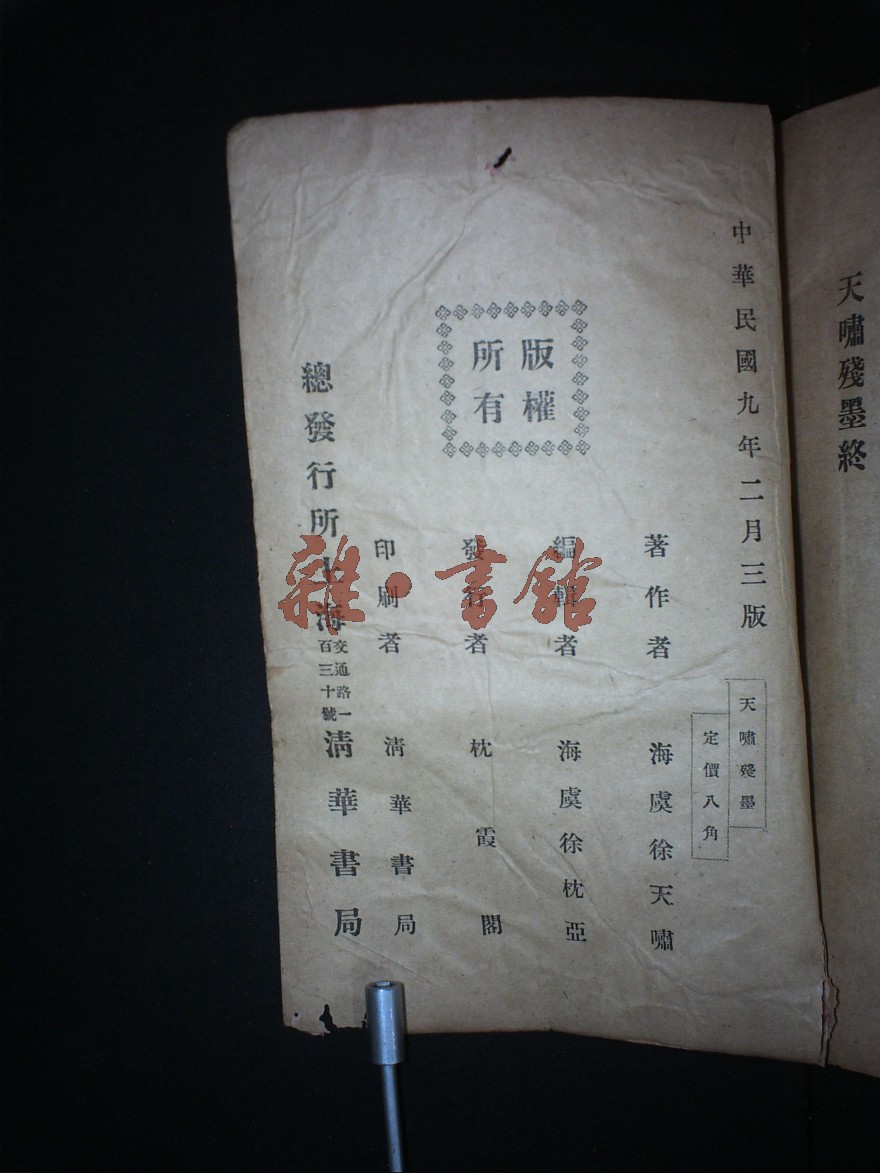 天嘯殘墨終
中華民國九年二月三版
天嘯殘墨
定價八角
著作者 海虞徐天嘯
編輯者 海虞徐枕亞
版權所有
發行者 枕霞閣
印刷者 清華書局
總發行所上海交通路一百三十號清華書局
雜·書館